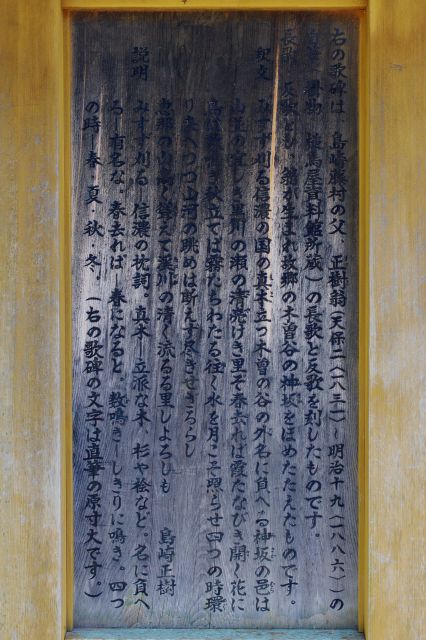 右の歌碑は、島崎藤村の父、正樹翁(天保二(一八三一)-明治十九(一八八六))の
掛物 資料館所蔵)の長歌と反歌を刻したものです。
長歌 反歌とも、翁が生まれ故郷の木曽谷の神坂をほめたたえたものです。
釈文 みすず刈る信濃の国の真木立つ木曽の谷の外名に負へる神坂の邑は
山並の宜しも里川の瀬の清けき里ぞ春去れば霞たなびき開く花に
鳥 秋立てば霧たちわたる往く水を月こそ照らせ四つの時環
り来へつつ山河の眺めは断えず尽きせざるらし
恵那の山 聳えて里川の清く流るる里しよろしも 島崎正樹
説明 みすず刈る-信濃の枕詞。真木-立派な木、杉や桧など。名に負へ
る-有名な。春去れば-春になると。数鳴き-しきりに鳴き。四つ
の時-春・夏・秋・冬。(右の歌碑の文字は直筆の原寸大です。)